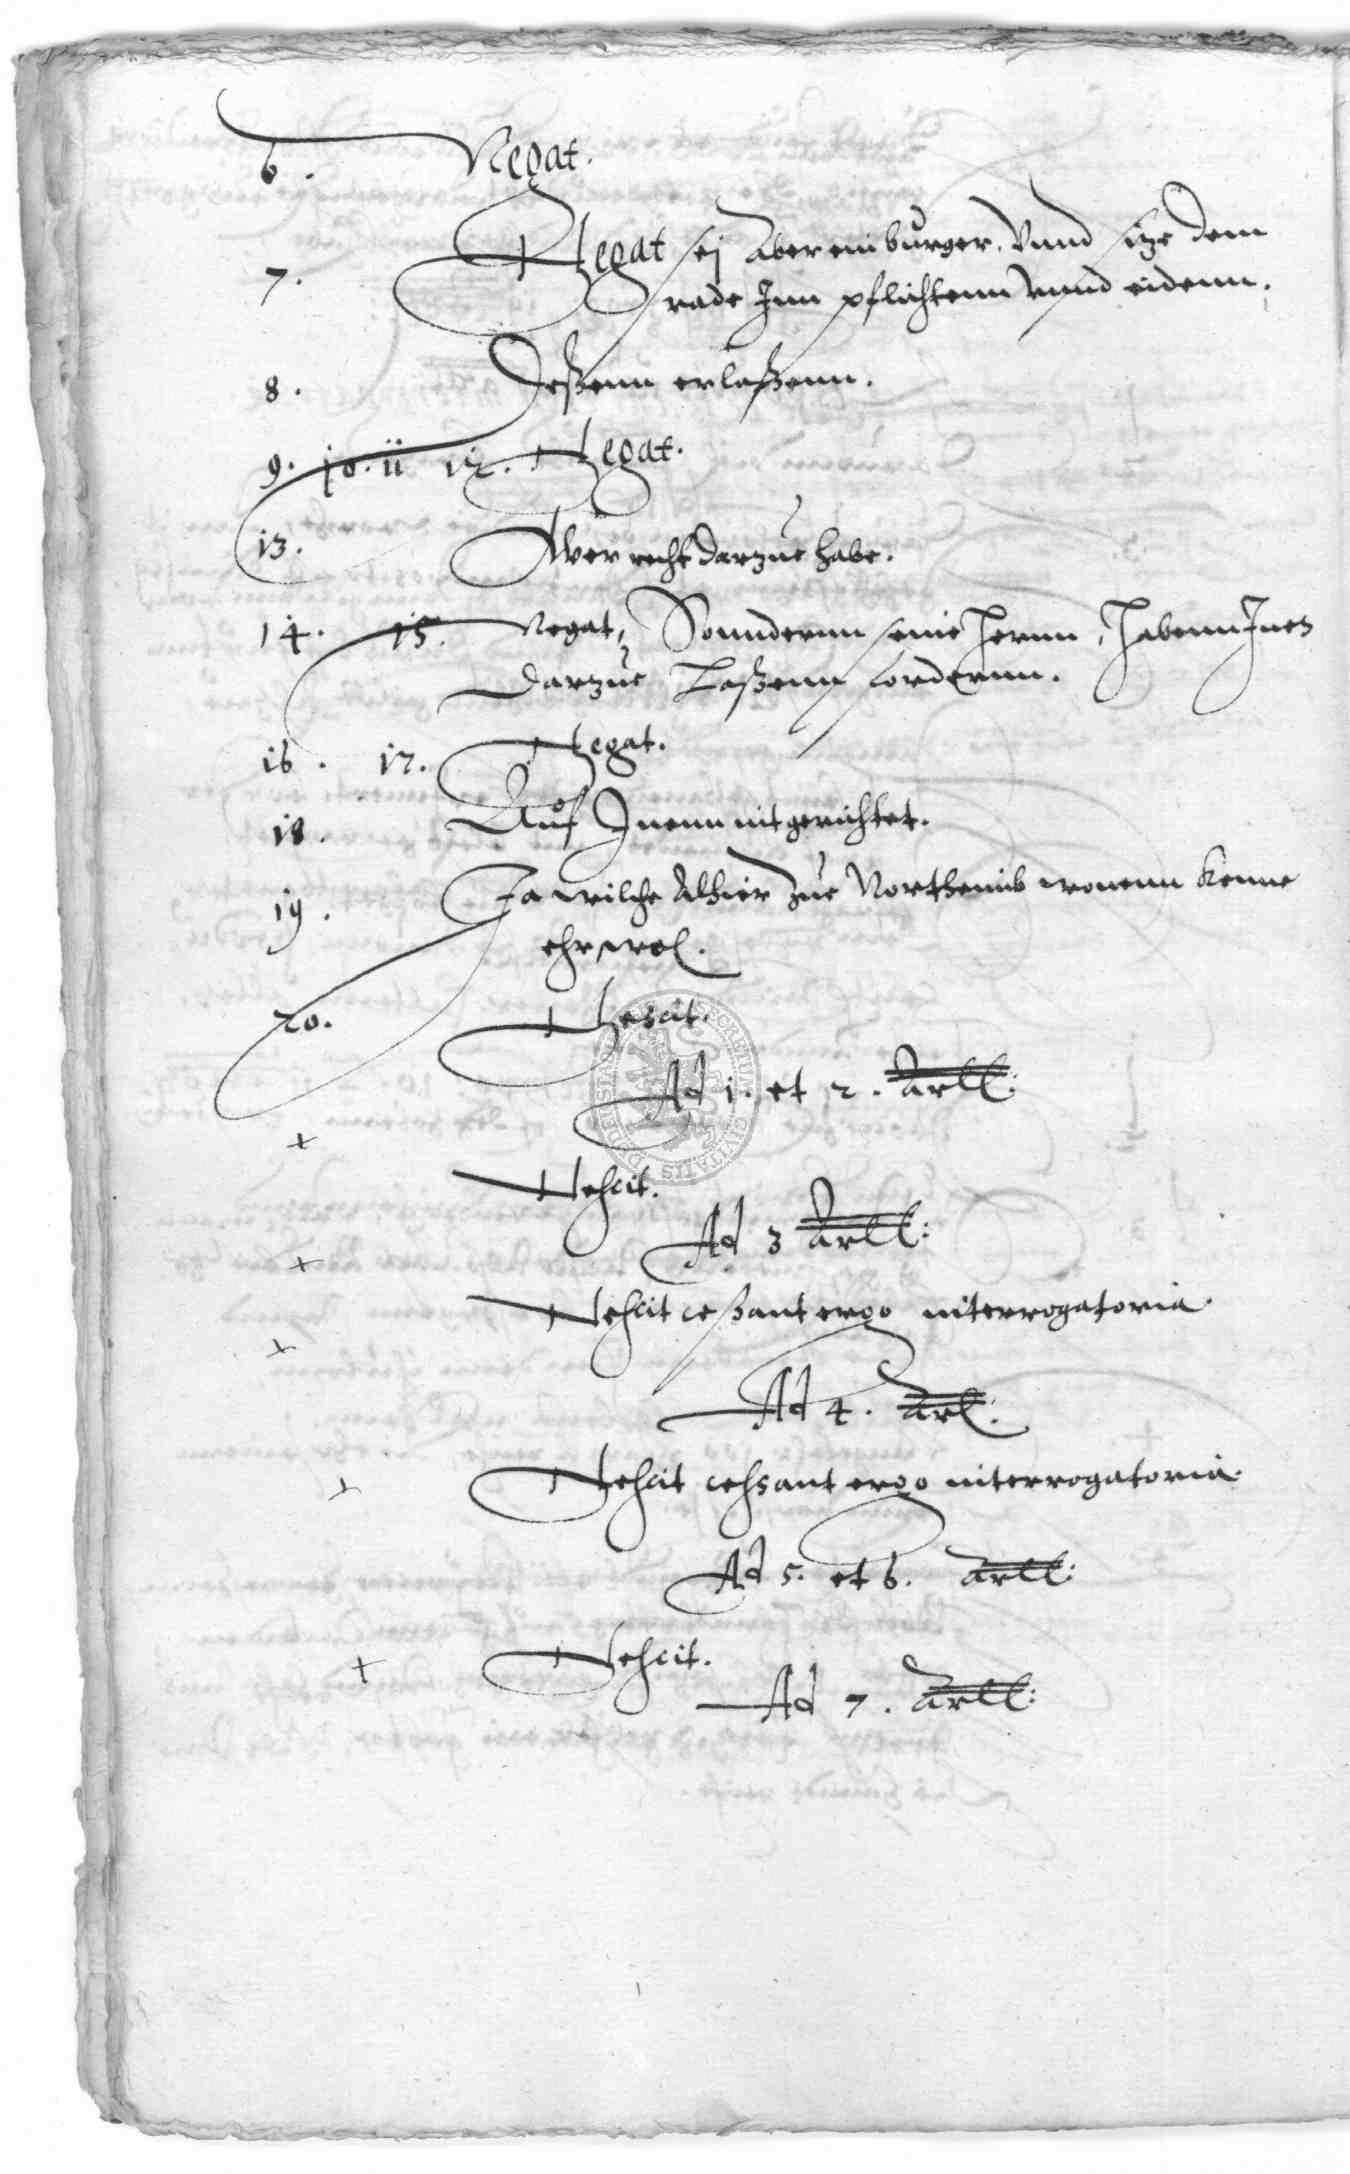 6. Negat.
7. Negat sej aber ein burger. Vnnd sitze dem
rade Inn pflichtenn vnnd eidenn.
8. Deßenn erlaßenn.
9. 10. ii 12. Negat.
13. Wer recht darzue habe.
14. 15. Negat, Sonndernn seine Hernn, Habenn Inen
darzue Laßenn fordernn.
16. 17. Negat.
18. Auf Inenn nit gerichtet.
19. Ja wilche Alhier zue Northeimb wonenn kenne
ehr wol.
20. Nescit.
Ad 1. et 2. Artl:
+ Nescit.
Ad 3 Artl:
+ Nescit ceßant ergo interrogatoria.
+ Ad 4. Art:
+ Nescit cessant ergo interrogatoria.
Ad 5. et 6. Artl:
+ Nescit.
Ad 7. Artl: